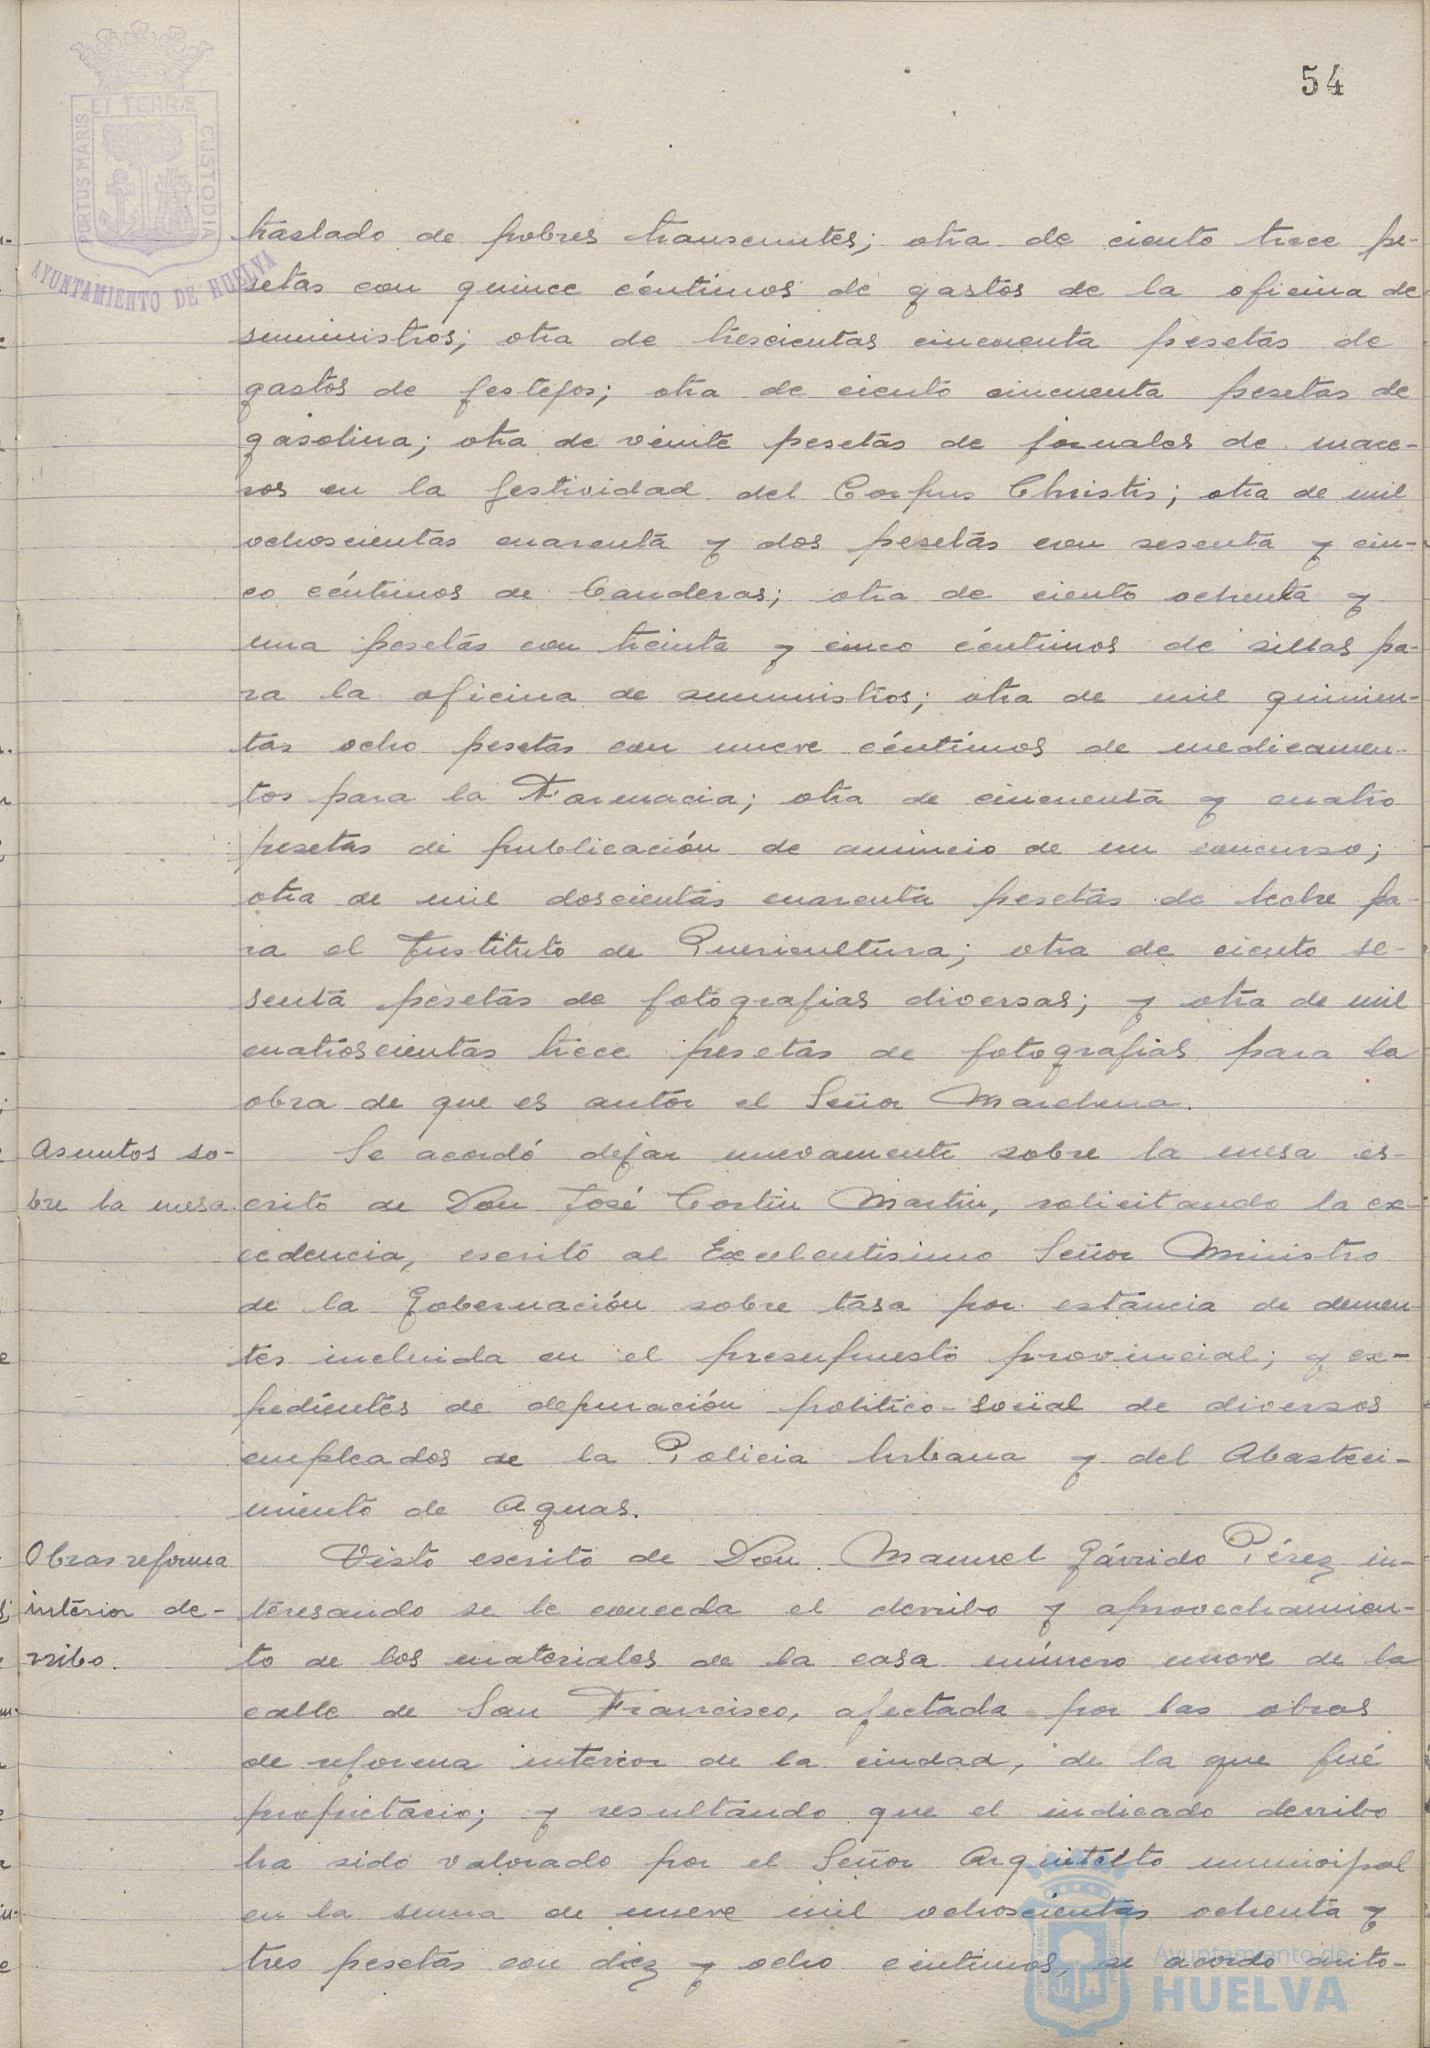 54
PORTUS MARIS ET TERRÆ CUSTODIA
AYUNTAMIENTO DE HUELVA
traslado de pobres transeuntes; otra de ciento trece pe-
setas con quince céntimos de gastos de la oficina de
suministros; otra de trescientas cincuenta pesetas de
gastos de festejos; otra de ciento cincuenta pesetas de
gasolina; otra de veinte pesetas de jornales de mace-
ros en la festividad del Corpus Christis; otra de mil
ochoscientas cuarenta y dos pesetas con sesenta y cin-
co céntimos de banderas; otra de ciento ochenta y
una pesetas con treinta y cinco céntimos de sillas pa-
ra la oficina de suministros; otra de mil quinien-
tas ocho pesetas con nueve céntimos de medicamen-
tos para la Farmacia; otra de cincuenta y cuatro
pesetas de publicación de anuncio de un concurso;
otra de mil doscientas cuarenta pesetas de leche pa-
ra el Instituto de Puericultura; otra de ciento se-
senta pesetas de fotografias diversas; y otra de mil
cuatroscientas trece pesetas de fotografias para la
obra de que es autor el Señor Marchena.
Asuntos so-
bre la mesa.
Se acordó dejar nuevamente sobre la mesa es-
crito de Don José Cortin Martin, solicitando la ex-
cedencia, escrito al Excelentisimo Señor Ministro
de la Gobernación sobre tasa por estancia de demen-
tes incluida en el presupuesto provincial; y ex-
pedientes de depuración politico-social de diversos
empleados de la Policia Urbana y del Abasteci-
miento de Aguas.
Obras reforma
interior de-
rribo.
Visto escrito de Don Manuel Gárrido Pérez in-
teresando se le conceda el derribo y aprovechamien-
to de los materiales de la casa número nueve de la
calle de San Francisco, afectada por las obras
de reforma interior de la ciudad, de la que fué
propietario; y resultando que el indicado derribo
ha sido valorado por el Señor Arquitecto municipal
en la suma de nueve mil ochoscientas ochenta y
tres pesetas con diez y ocho centimos, se acordo auto-
Ayuntamiento de
HUELVA